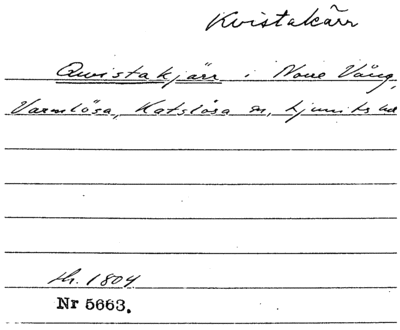 Kvistakärr
Qwistakjärr i Norre Väng,
Varmlösa, Katslösa sn, Ljunits hd
th. 1804
Nr 5663.